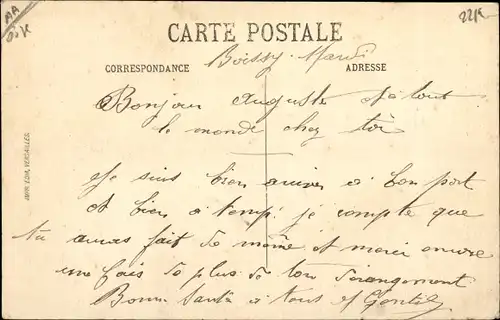 AA
05K
22K
CARTE POSTALE
CORRESPONDANCE
ADRESSE
Boissy Mardi
Bonjour Auguste et à tout
le monde chez toi
Je suis bien arrivé à bon port
et bien à temp, je compte que
tu auras fait de même et merci encore
une fois de plus de ton derangement
Bonne Santé à tous
IMP. LDIA, VERSAILLES.